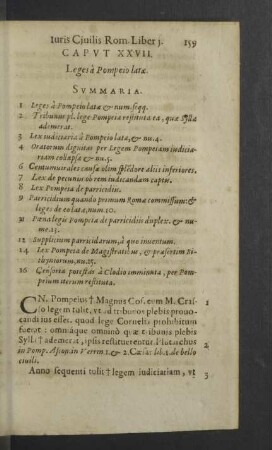 Iuris Ciuilis Rom. Liber j. 159
CAPVT XXVII.
Leges à Pompeio latæ.
SVMMARIA.
1 Leges à Pompeio latæ & num. seqq.
2 Tribunis pl. lege Pompeia restituta ea, quæ Sylla
ademerat.
3 Lex iudiciaria à Pompeio lata, & nu. 4.
4 Oratorum dignitas per Legem Pompeiam iudicia-
ream collapsa & nu. 5.
6 Centumuirales causæ olim splēdore aliis inferiores.
7 Lex de pecunia ob rem iudicandam captis.
8 Lex Pompeia de parricidiis.
9 Parricidium quando primum Romæ commissum: &
leges de eo latæ, num. 10.
11 Pœna legis Pompeiæ de parricidiis duplex. & nu-
me. 13.
12 Supplicium parricidarum, à quo inuentum.
14 Lex Pompeia de Magistratibus, & præsertim Bi-
thyniorum, nu. 15.
16 Censoria potestas à Clodio imminuta, per Pom-
peium iterum restituta.
CN. Pompeius † Magnus Cos. cum M. Cras- 1
so legem tulit, vt ad tribunos plebis prouo-
candi ius esset. quod lege Cornelia prohibitum
fuerat: omniáque omninò quæ tribunis plebis
Sylla † ademerat, ipsis restituerentur. Plutarchus 2
in Pomp. Ascon. in Verrem 1. & 2. Cæsar lib. 1. de bello
ciuili.
Anno sequenti tulit † legem iudiciariam, vt 3